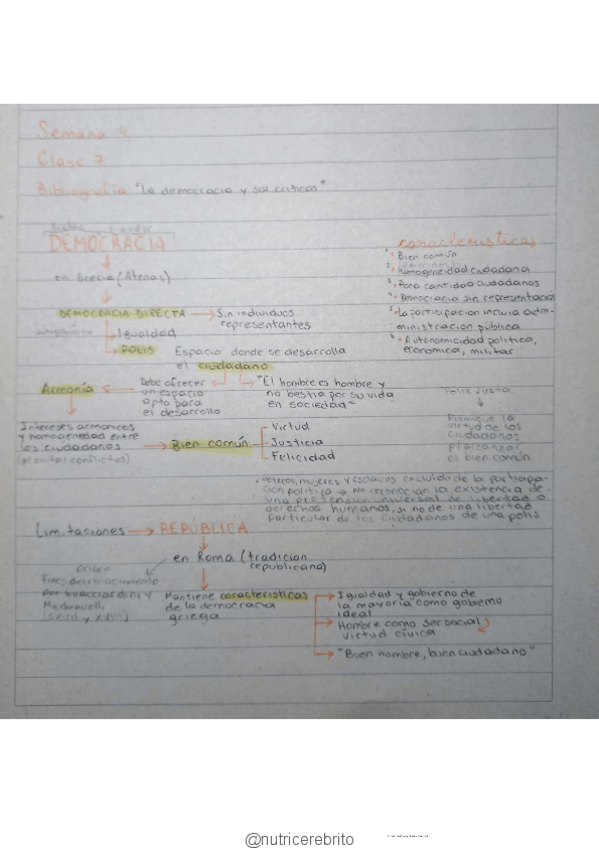 Semana 4
Clase 7
Bibliografía "La democracia y sus críticos"
DEMOCRACIA
en Grecia (Atenas)
DEMOCRACIA DIRECTA → Sin individuos
representantes
→ Igualdad
→ POLIS Espacio donde se desarrolla
el ciudadano
características
1º Bien común
2º Homogeneidad ciudadana
3º Poca cantidad ciudadanos
4º Democracia sin representación
5º La participación incluía admi-
nistración pública
6º Autonomicidad política,
económica, militar
Armonía
Debe ofrecer
un espacio
apto para
el desarrollo
"El hombre es hombre y
no bestia por su vida
en sociedad"
Polis Justa
Promueve la
virtud de los
ciudadanos
p/alcanzar
el bien común
Intereses armónicos
y homogeneidad entre
los ciudadanos
(p/evitar conflictos)
→ Bien común
Virtud
Justicia
Felicidad
• Metecos, mujeres y esclavos excluido de la participa-
ción política → No reconocían la existencia de
una pretensión universal de libertad o
derechos humanos, si no de una libertad
particular de los ciudadanos de una polis
Limitaciones → REPÚBLICA
en Roma (tradición
republicana)
origen
Mantiene características
de la democracia
griega
→ Igualdad y gobierno de
la mayoría como gobierno
ideal
→ Hombre como ser social
virtud cívica
→ "Buen hombre, buen ciudadano"
@nutricerebrito